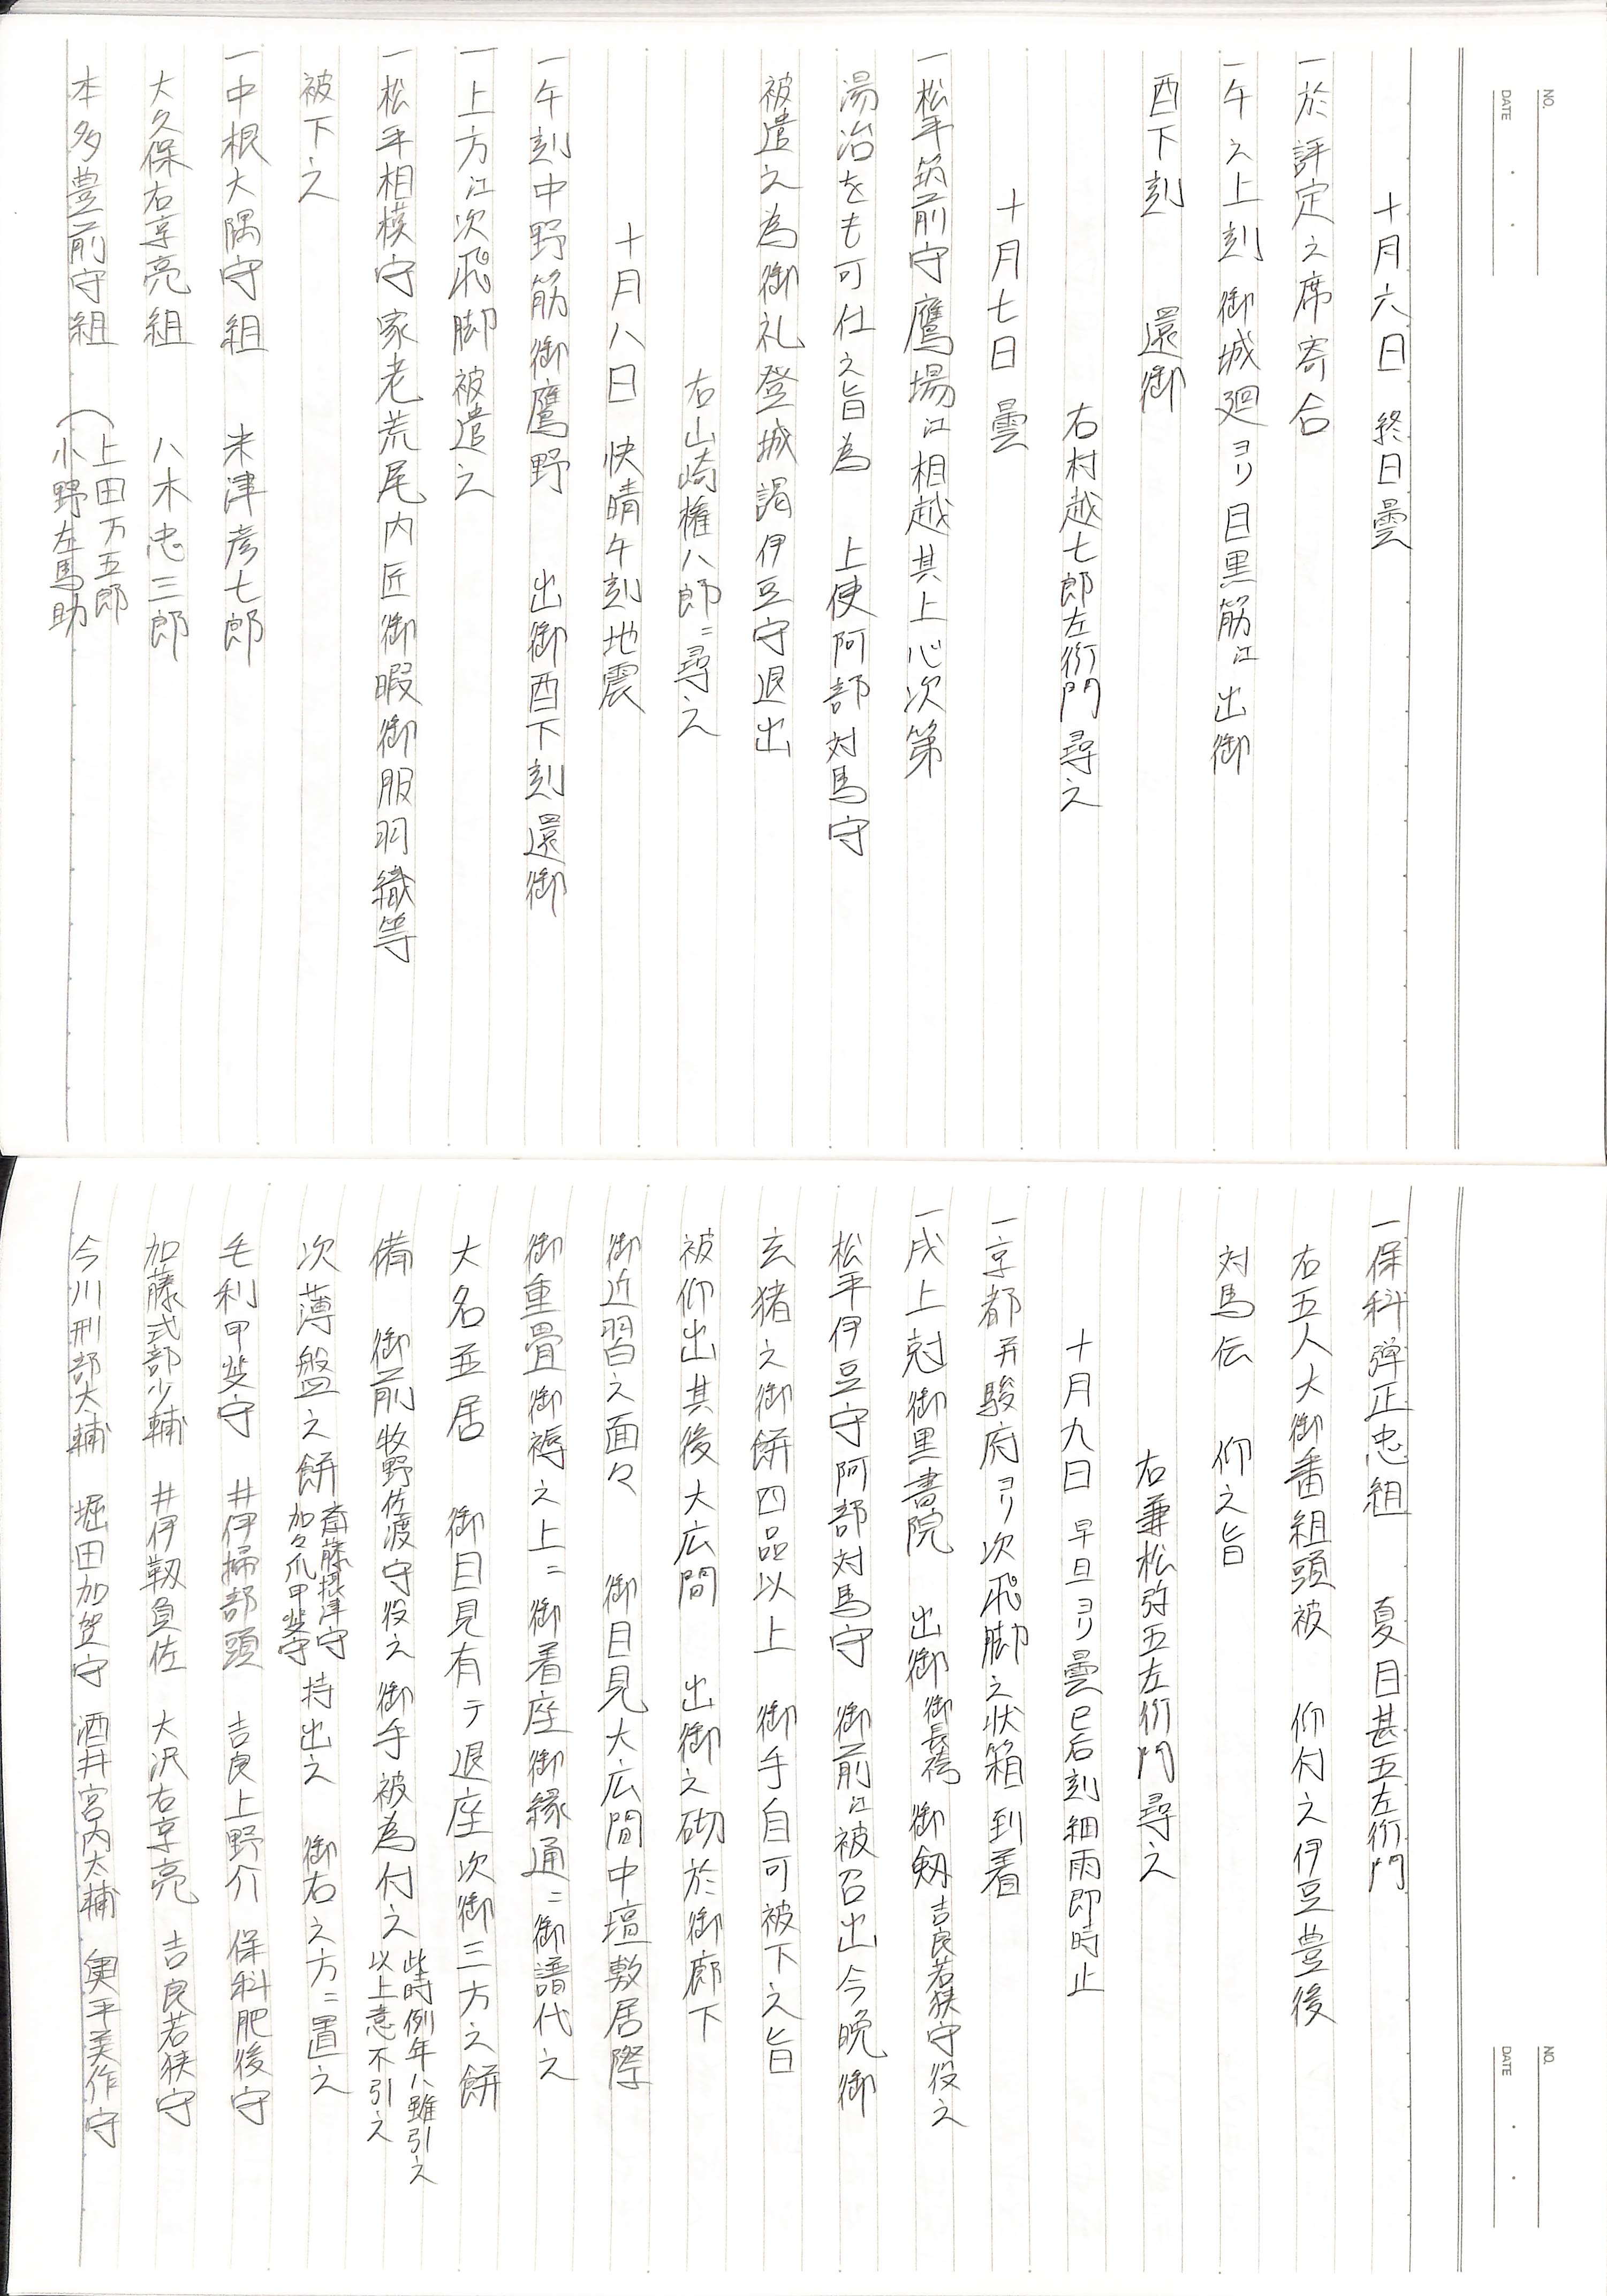 NO.
DATE
十月六日 終日曇
一於評定之席寄合
一午之上刻 御城廻ヨリ目黒筋江 出御
酉下刻 還御
右村越七郎左衛門尋之
十月七日 曇
一松平筑前守鷹場江相越其上心次第
湯治をも可仕之旨為 上使阿部対馬守
被遣之為御礼登城謁伊豆守退出
右山崎権八郎ニ尋之
十月八日 快晴午刻地震
一午刻中野筋御鷹野 出御酉下刻還御
一上方江次飛脚被遣之
一松平相模守家老荒尾内匠御暇御服羽織等
被下之
一中根大隅守組 米津彦七郎
大久保右京亮組 八木忠三郎
本多豊前守組 上田万五郎
小野左馬助
NO.
DATE
一保科弾正忠組 夏目甚五左衛門
右五人大御番組頭被 仰付之伊豆豊後
対馬伝 仰之旨
右兼松弥五左衛門尋之
十月九日 早旦ヨリ曇巳后刻細雨即時止
一京都并駿府ヨリ次飛脚之状箱到着
一戌上剋御黒書院 出御御長袴 御剱吉良若狭守役之
松平伊豆守阿部対馬守 御前江被召出今晩御
玄猪之御餅四品以上 御手自可被下之旨
被仰出其後大広間 出御之砌於御廊下
御近習之面々 御目見大広間中壇敷居際
御重畳御褥之上ニ御着座御縁通ニ御譜代之
大名並居 御目見有テ退座次御三方之餅
備 御前牧野佐渡守役之 御手被為付之此時例年ハ雖引之
以上意不引之
次薄盤之餅斎藤摂津守
加々爪甲斐守持出之 御右之方ニ置之
毛利甲斐守 井伊掃部頭 吉良上野介 保科肥後守
加藤式部少輔 井伊靱負佐 大沢右京亮 吉良若狭守
今川刑部大輔 堀田加賀守 酒井宮内太輔 奥平美作守